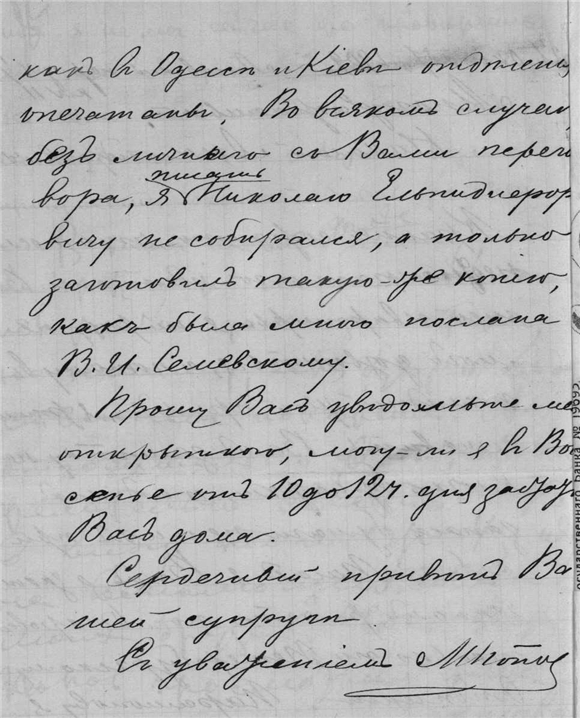 какъ въ Одессѣ и Кіевѣ отдѣлені
опечатаны. Во всякомъ случаѣ,
безъ личнаго съ Вами перего
писать
вора, я Николаю Ельпидифоро
вичу не собирался, а только
заготовилъ такую-же копію,
какъ была мною послана
В. И. Семевскому.
Прошу Васъ увѣдомьте ме
открыткою, могу-ли я въ Вос
сенье отъ 10 до 12 ч. дня застать
Васъ дома.
Сердечный привѣтъ Ва
шей супругѣ.
Съ уваженіемъ